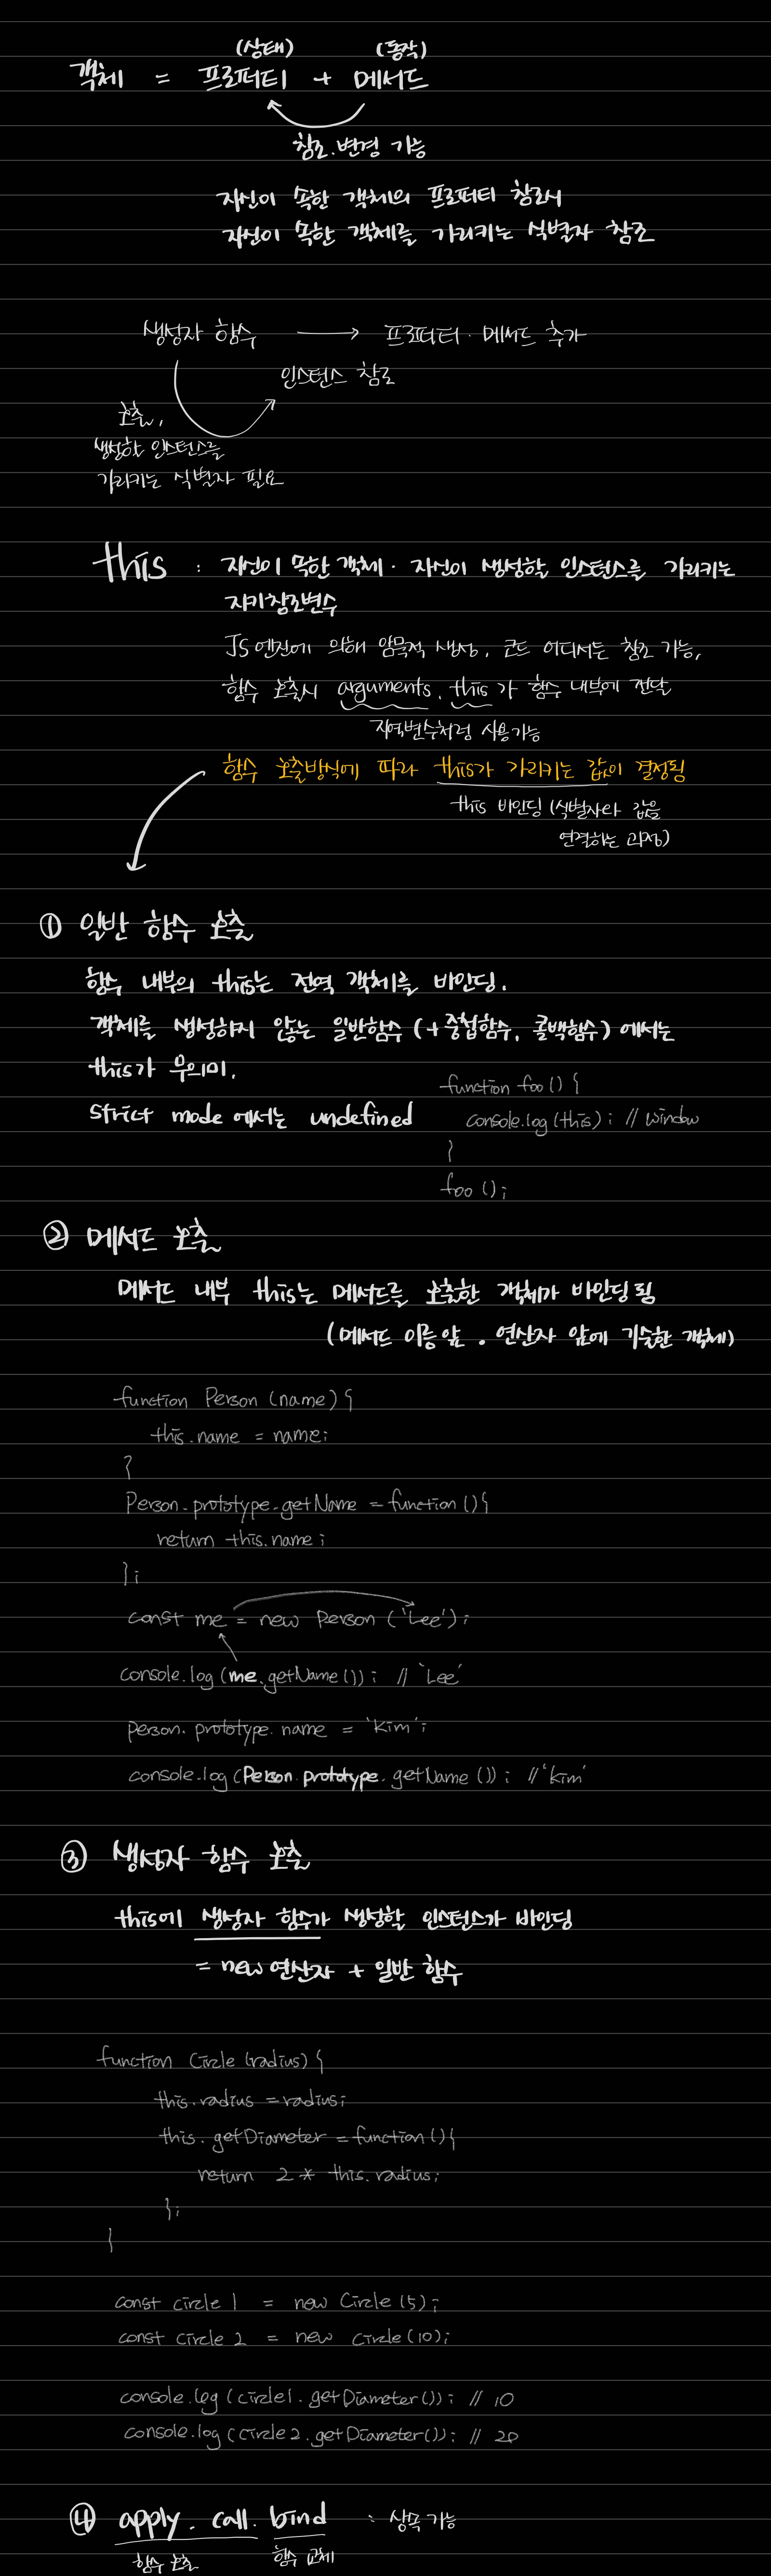 (상태) (동작)
객체 = 프로퍼티 + 메서드
참조·변경 가능
자신이 속한 객체의 프로퍼티 참조시
자신이 속한 객체를 가리키는 식별자 참조
생성자 함수 → 프로퍼티·메서드 추가
인스턴스 참조
호출,
생성할 인스턴스를
가리키는 식별자 필요
this : 자신이 속한 객체·자신이 생성할 인스턴스를 가리키는
자기참조변수
JS 엔진에 의해 암묵적 생성, 코드 어디서든 참조 가능,
함수 호출시 arguments, this가 함수 내부에 전달
지역변수처럼 사용가능
함수 호출방식에 따라 this가 가리키는 값이 결정됨
this 바인딩 (식별자와 값을
연결하는 과정)
① 일반 함수 호출
함수 내부의 this는 전역 객체를 바인딩.
객체를 생성하지 않는 일반함수 (+중첩함수, 콜백함수) 에서는
this가 무의미.
strict mode 에서는 undefined
function foo () {
console.log(this); // window
}
foo ();
② 메서드 호출
메서드 내부 this는 메서드를 호출한 객체가 바인딩 됨
(메서드 이름앞 . 연산자 앞에 기술한 객체)
function Person (name) {
this.name = name;
}
Person.prototype.getName = function () {
return this.name;
};
const me = new Person ('Lee');
console.log (me.getName()); // 'Lee'
person.prototype.name = 'Kim';
console.log (Person.prototype.getName ()); // 'Kim'
③ 생성자 함수 호출
this에 생성자 함수가 생성할 인스턴스가 바인딩
= new 연산자 + 일반 함수
function Circle (radius) {
this.radius = radius;
this.getDiameter = function () {
return 2 * this.radius;
};
}
const circle 1 = new Circle (5);
const circle 2 = new Circle (10);
console.log (circle1.getDiameter()); // 10
console.log (circle 2.getDiameter()); // 20
④ apply. call. bind : 상속 가능
함수 호출 함수 교체